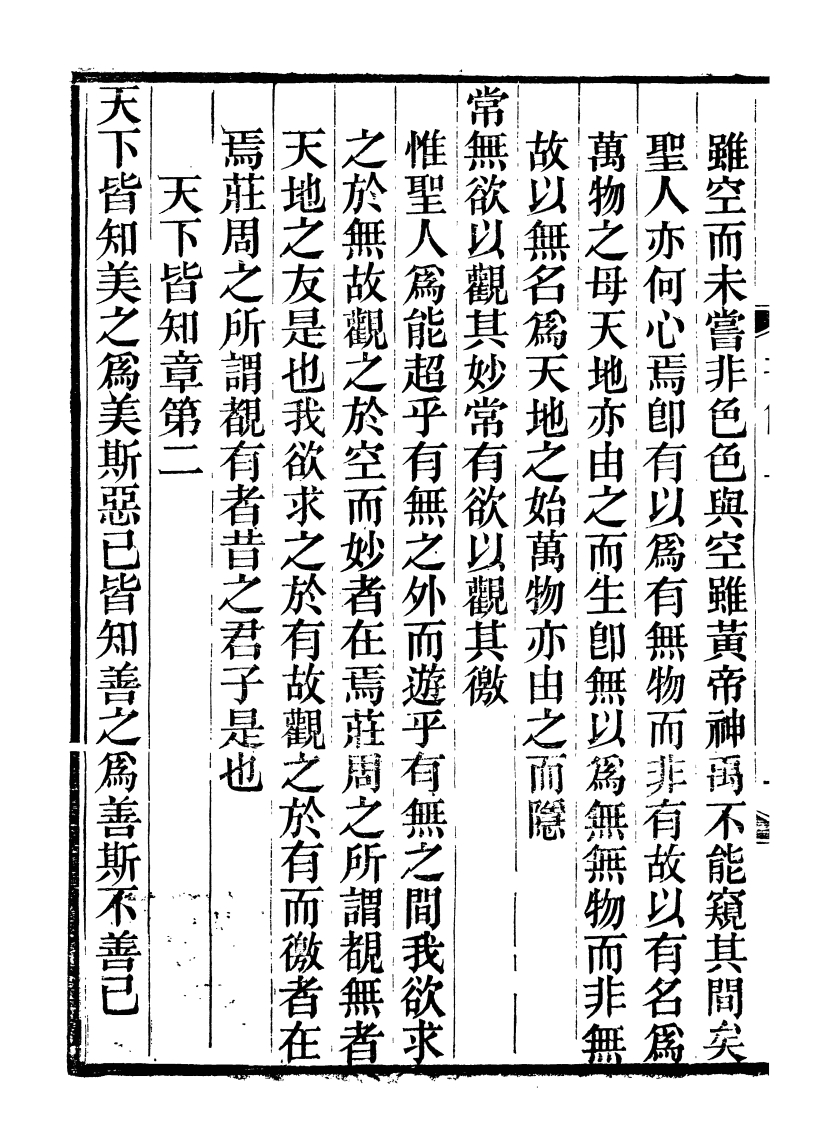 雖空而未嘗非色色與空雖黃帝神禹不能窺其間矣
聖人亦何心焉卽有以爲有無物而非有故以有名爲
萬物之母天地亦由之而生卽無以爲無無物而非無
故以無名爲天地之始萬物亦由之而隱
常無欲以觀其妙常有欲以觀其徼
惟聖人爲能超乎有無之外而遊乎有無之間我欲求
之於無故觀之於空而妙者在焉莊周之所謂覩無者
天地之友是也我欲求之於有故觀之於有而徼者在
焉莊周之所謂覩有者昔之君子是也
天下皆知章第二
天下皆知美之爲美斯惡已皆知善之爲善斯不善已